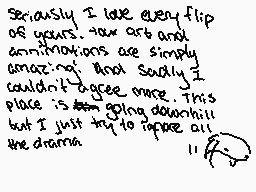 seriously I love every flip
of yours. Your art and
annimations are simply
amazing. And sadly I
couldn't agree more. This
place is going downhill
but I just try to ignore all
the drama